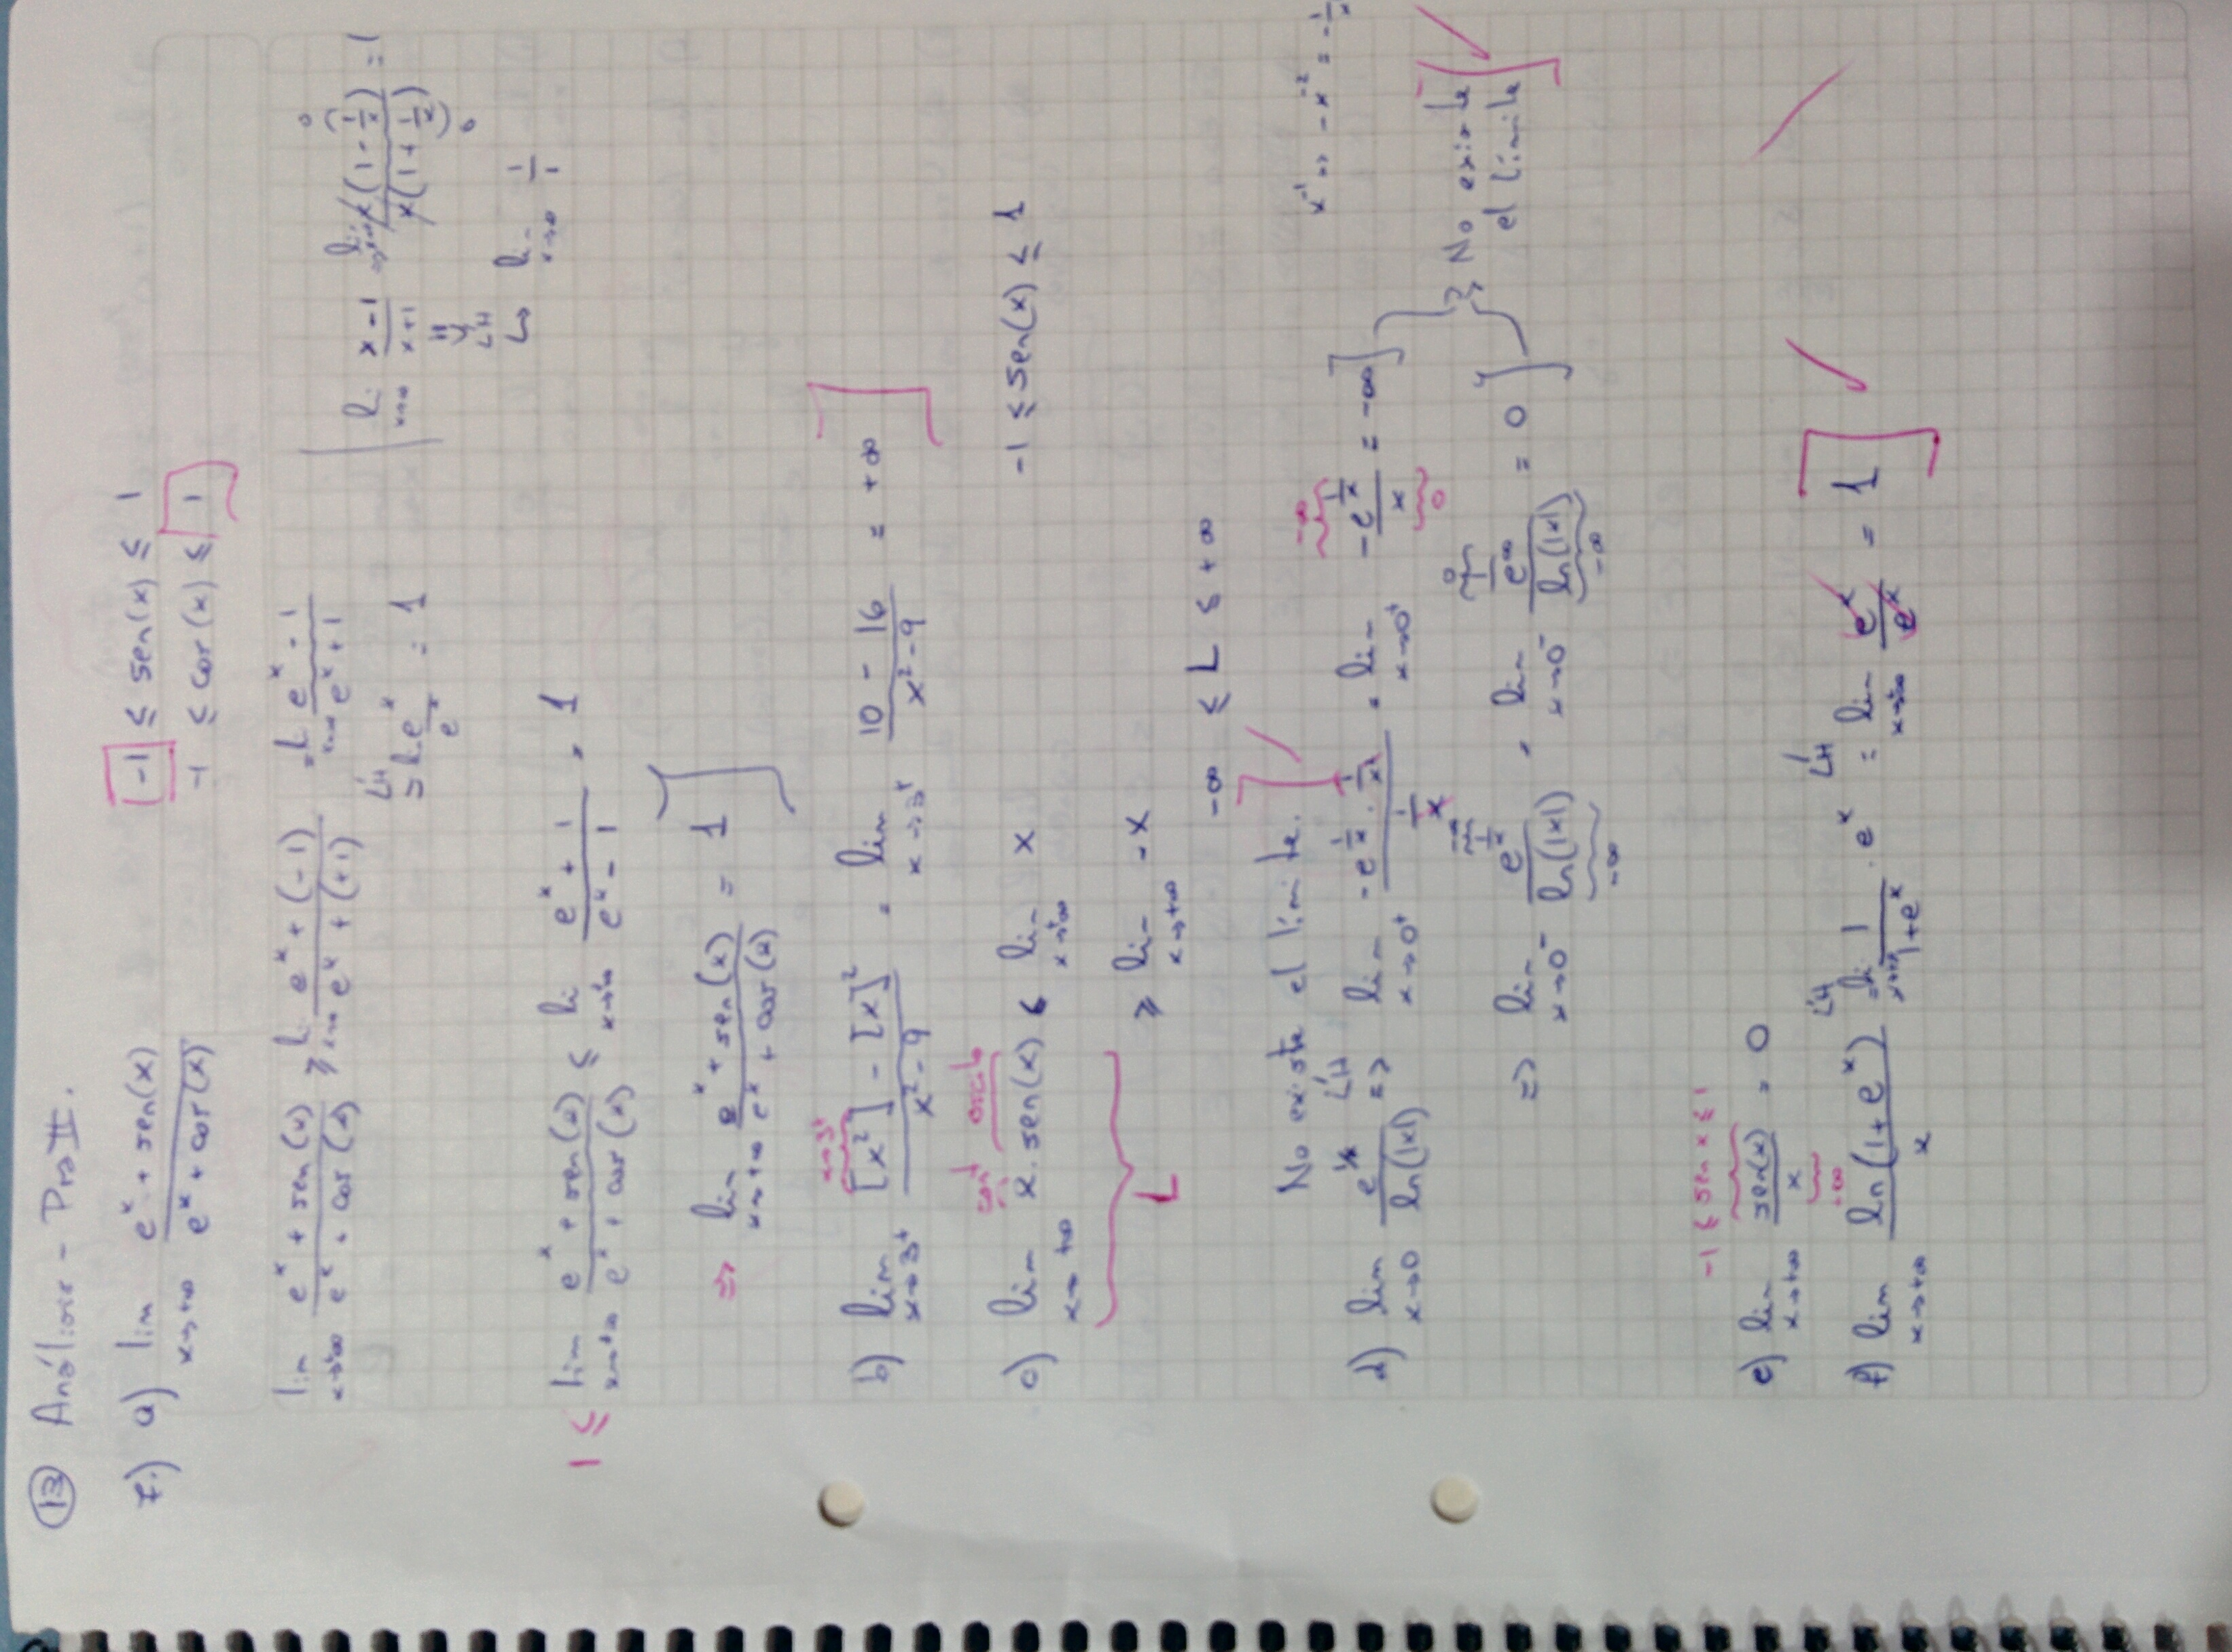 13 Análisis - Pra II.
7.) a) lim x→+∞ (e^x + sen(x))/(e^x + cos(x))   -1 ≤ sen(x) ≤ 1
-1 ≤ cos(x) ≤ 1
lim x→+∞ (e^x + sen(x))/(e^x + cos(x)) ≥ l x→∞ (e^x + (-1))/(e^x + (+1)) = l x→∞ (e^x - 1)/(e^x + 1)
L'H = l. e^x/e^x = 1
l. x→∞ (x-1)/(x+1) = lim x→∞ x(1 - 1/x)/x(1 + 1/x) = 1   0   0
L'H
↳ l. x→∞ 1/1
1 ≤ lim x→+∞ (e^x + sen(x))/(e^x + cos(x)) ≤ li x→∞ (e^x + 1)/(e^x - 1) = 1
⇒ lim x→+∞ (e^x + sen(x))/(e^x + cos(x)) = 1 ]
x→3⁺
b) lim x→3⁺ ([x²] - [x]²)/(x² - 9) = lim x→3⁺ (10 - 16)/(x² - 9) = +∞ ]
c) lim x→+∞ x · sen(x) ≤ lim x→+∞ x   -1 ≤ sen(x) ≤ 1
L   ≥ lim x→+∞ -x
-∞ ≤ L ≤ +∞
No existe el límite. ] ✓
d) lim x→0 e^(1/x)/ln(|x|) L'H => lim x→0⁺ (-e^(1/x) · 1/x²)/(1/x) = lim x→0⁺ -e^(1/x)/x = -∞ ]   -∞   0
x^-1 → -x^-2 = -1/x
=> lim x→0⁻ e^(1/x)/ln(|x|) = lim x→0⁻ (1/e^∞)/ln(|x|) = 0 ]   0   -∞   -∞
No existe el límite ] ✓
-1 ≤ sen x ≤ 1
e) lim x→+∞ sen(x)/x = 0
+∞
f) lim x→+∞ ln(1+e^x)/x L'H = li x→+∞ 1/(1+e^x) · e^x L'H = lim x→+∞ e^x/e^x = 1 ] ✓